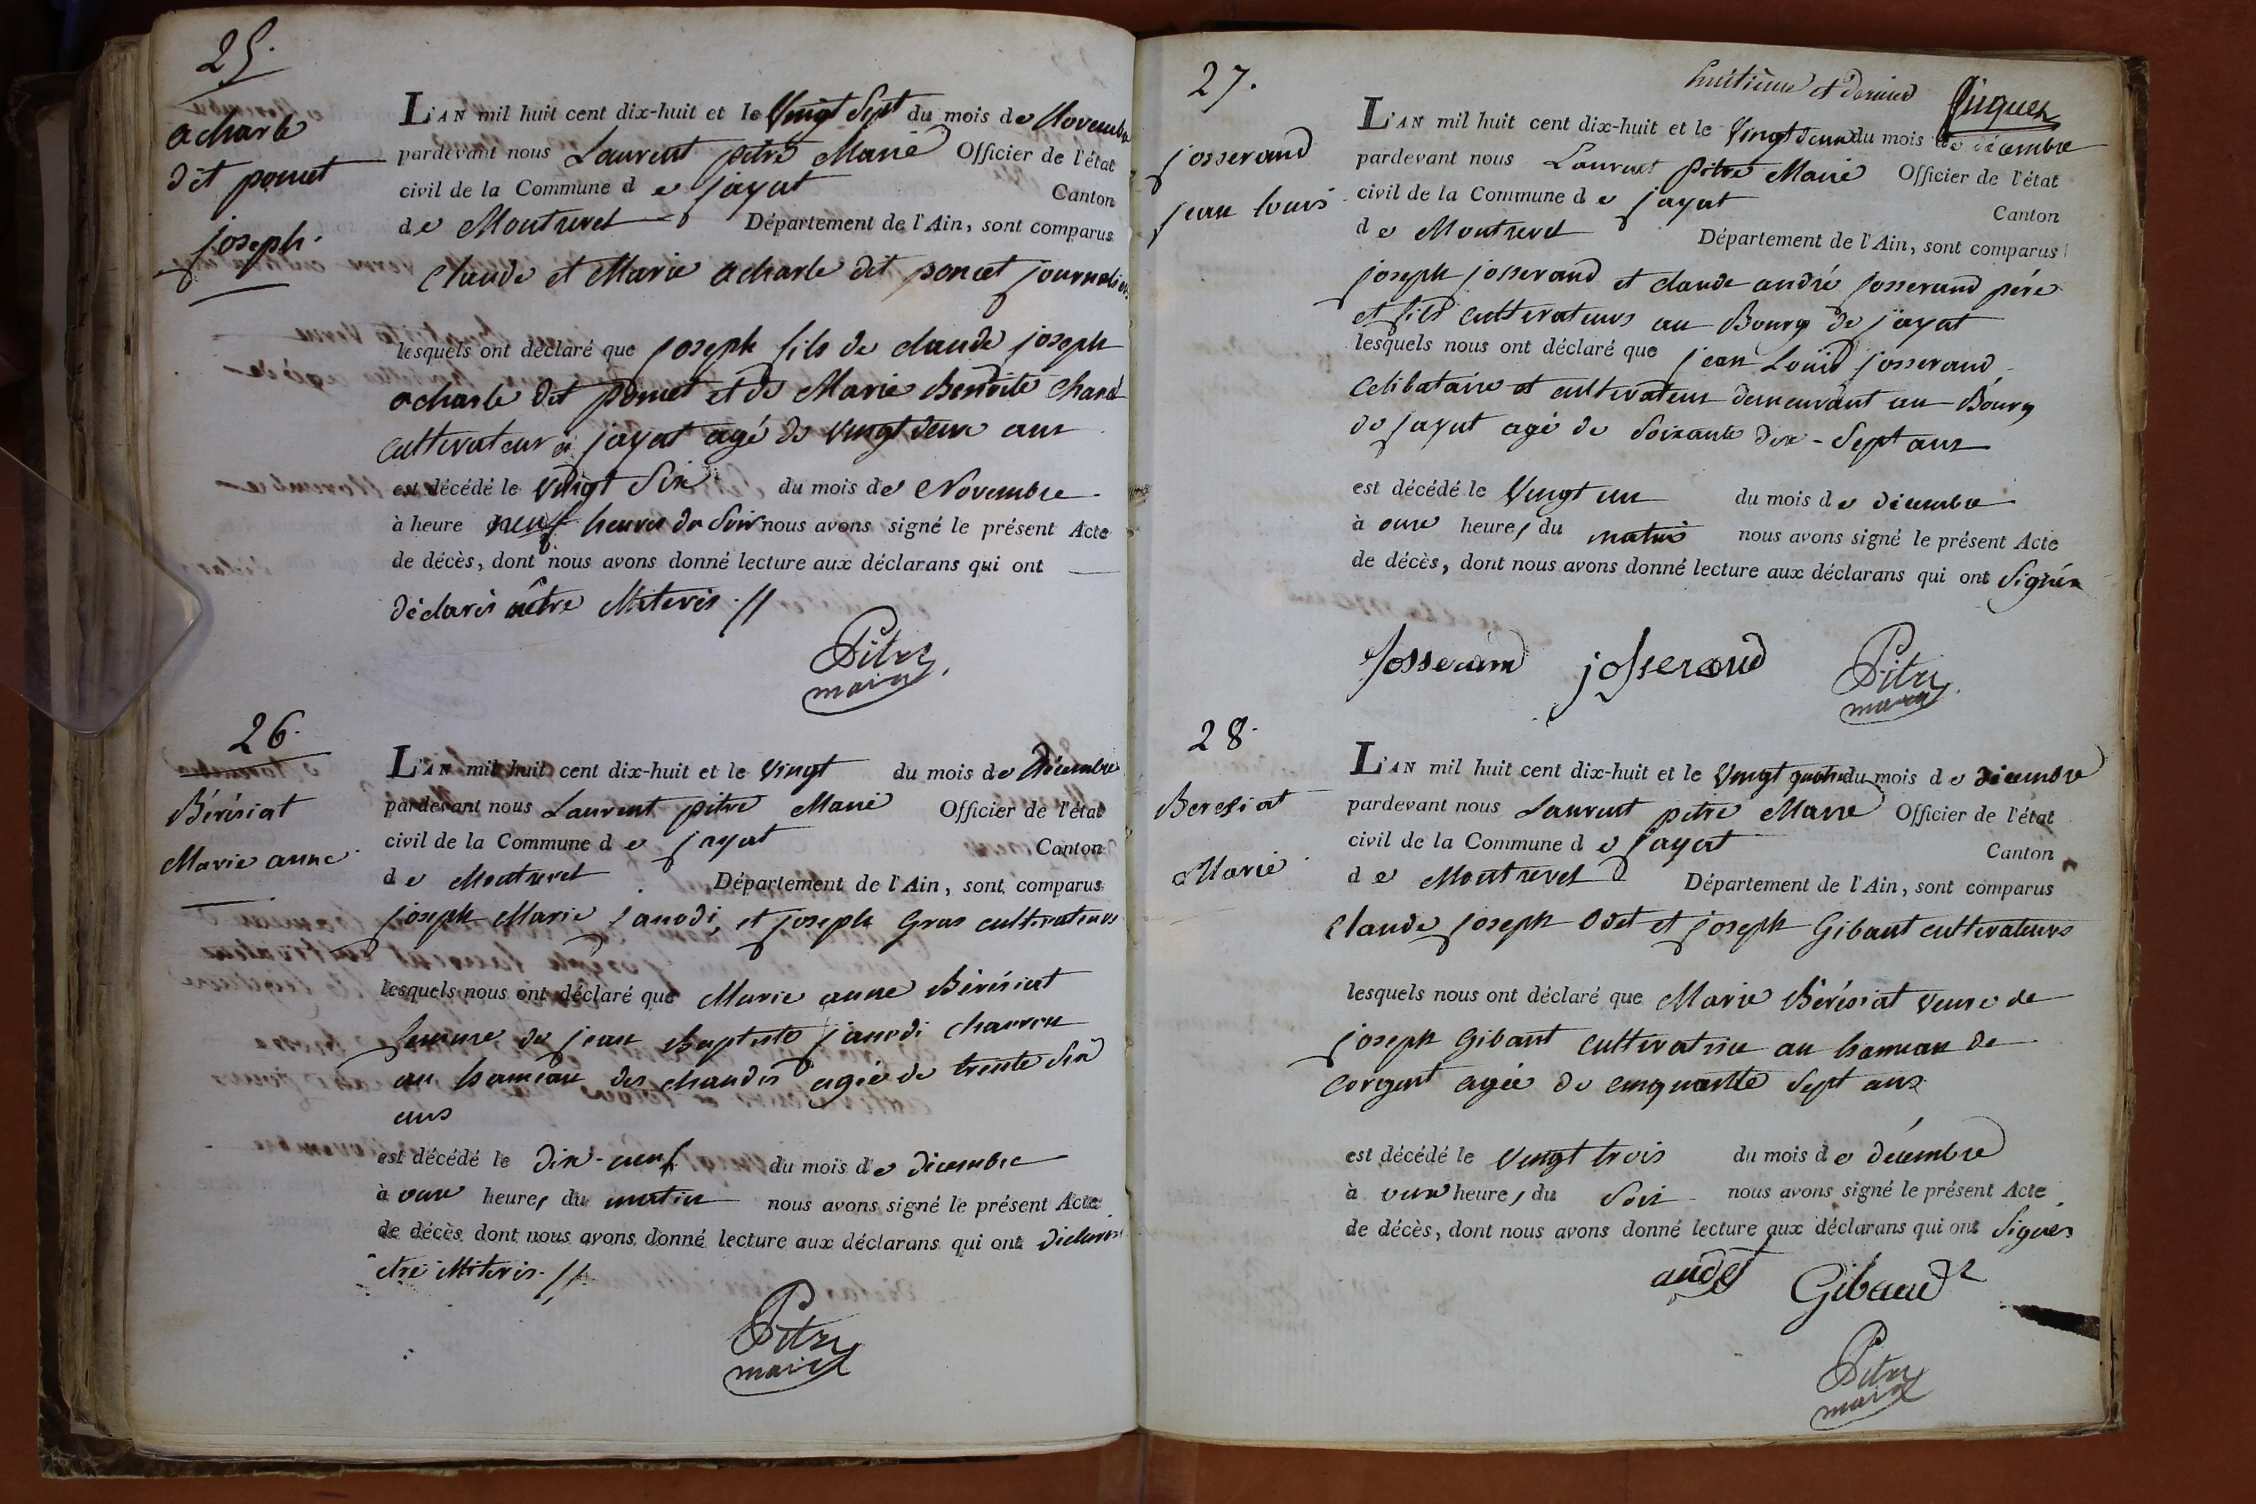 25.
acharle
dit poncet
joseph.
L'AN mil huit cent dix-huit et le Vingt Sept du mois de Novembre
pardevant nous Laurent pitre Maire Officier de l'état
civil de la Commune de jayat Canton
de Montrevel Département de l'Ain, sont comparus
Claude et Marie acharle dit poncet journaliers
lesquels ont déclaré que joseph fils de claude joseph
acharle dit poncet et de Marie Benoite
cultivateur a jayat agé de vingt deux ans
est décédé le vingt Six du mois de Novembre
à heure neuf heures du Soir nous avons signé le présent Acte
de décès, dont nous avons donné lecture aux déclarans qui ont
déclarés être iliterés.//
Pitre
maire
26.
Bérésiat
Marie anne
L'AN mil huit cent dix-huit et le Vingt du mois de Décembre
pardevant nous Laurent pitre Maire Officier de l'état
civil de la Commune de jayat Canton
de Montrevel Département de l'Ain, sont comparus
joseph Marie janodi, et joseph Gras cultivateurs
lesquels nous ont déclaré que Marie anne Bérésiat
femme de jean Baptiste janodi charron
au hameau des chaudis agée de trente Six
ans
est décédé le dix-neuf du mois de décembre
à onze heures du matin nous avons signé le présent Acte
de décès dont nous avons donné lecture aux déclarans qui ont déclarés
être iliterés.//
Pitre
maire
huitième et dernier
27.
josserand
jean louis
L'AN mil huit cent dix-huit et le Vingt deux du mois de décembre
pardevant nous Laurent pitre Maire Officier de l'état
civil de la Commune de jayat Canton
de Montrevel Département de l'Ain, sont comparus
joseph josserand et claude andré josserand père
et fils cultivateurs au Bourg de jayat
lesquels nous ont déclaré que jean Louis josserand
celibataire et cultivateur demeurant au Bourg
de jayat agé de soixante dix-Sept ans
est décédé le Vingt un du mois de décembre
à onze heures du matin nous avons signé le présent Acte
de décès, dont nous avons donné lecture aux déclarans qui ont Signés
Josserand josserand Pitre
maire
28.
Beresiat
Marie
L'AN mil huit cent dix-huit et le Vingt quatre du mois de décembre
pardevant nous Laurent pitre Maire Officier de l'état
civil de la Commune de jayat Canton
de Montrevel Département de l'Ain, sont comparus
Claude joseph Odet et joseph Gibaut cultivateurs
lesquels nous ont déclaré que Marie Bérésiat veuve de
joseph Gibaut cultivatrice au hameau de
agée de cinquante Sept ans
est décédé le Vingt trois du mois de décembre
à onze heures du Soir nous avons signé le présent Acte
de décès, dont nous avons donné lecture aux déclarans qui ont Signés
audet Gibaud
Pitre
maire